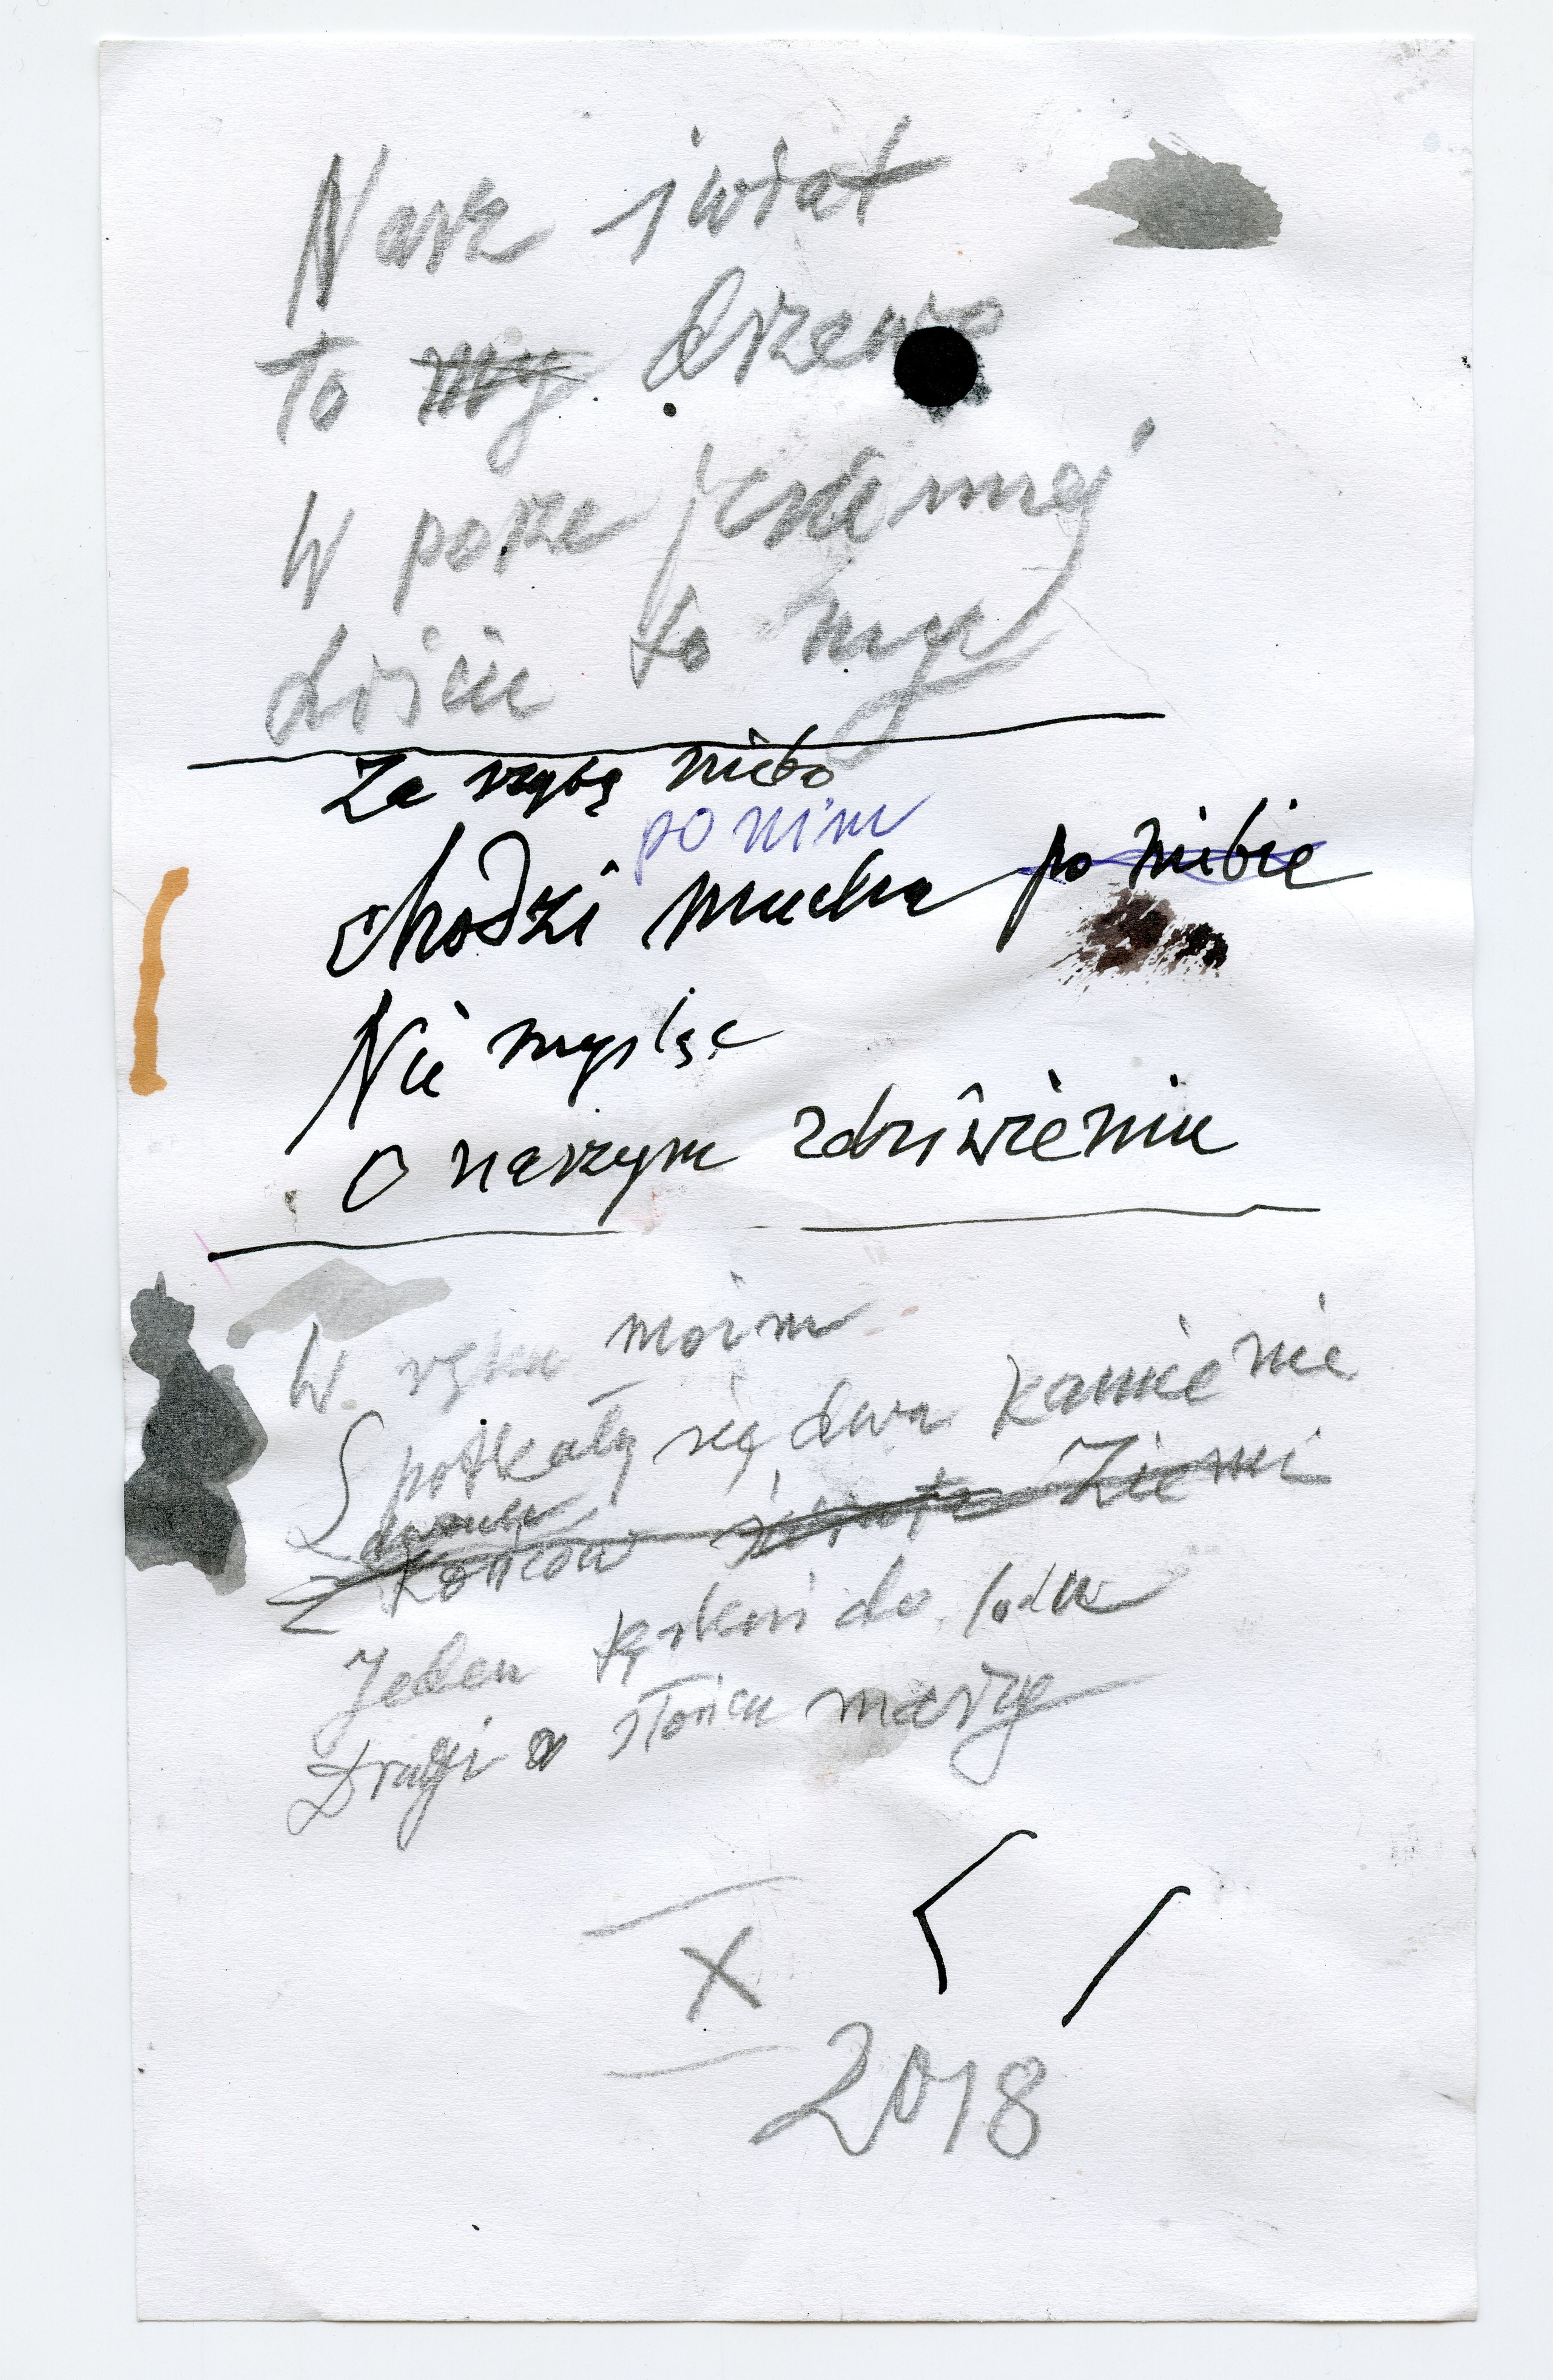 Nasz świat
To my drzewo
W porze jesiennej
Liście to my
Za szybą niebo
po nim
chodzi mucha po niebie
Nie myśląc
O naszym zdziwieniu
W ręku moim
Spotkały się dwa kamienie
Z końców świata Ziemi
Jeden tęskni do lodu
Drugi o słońcu marzy
X
2018